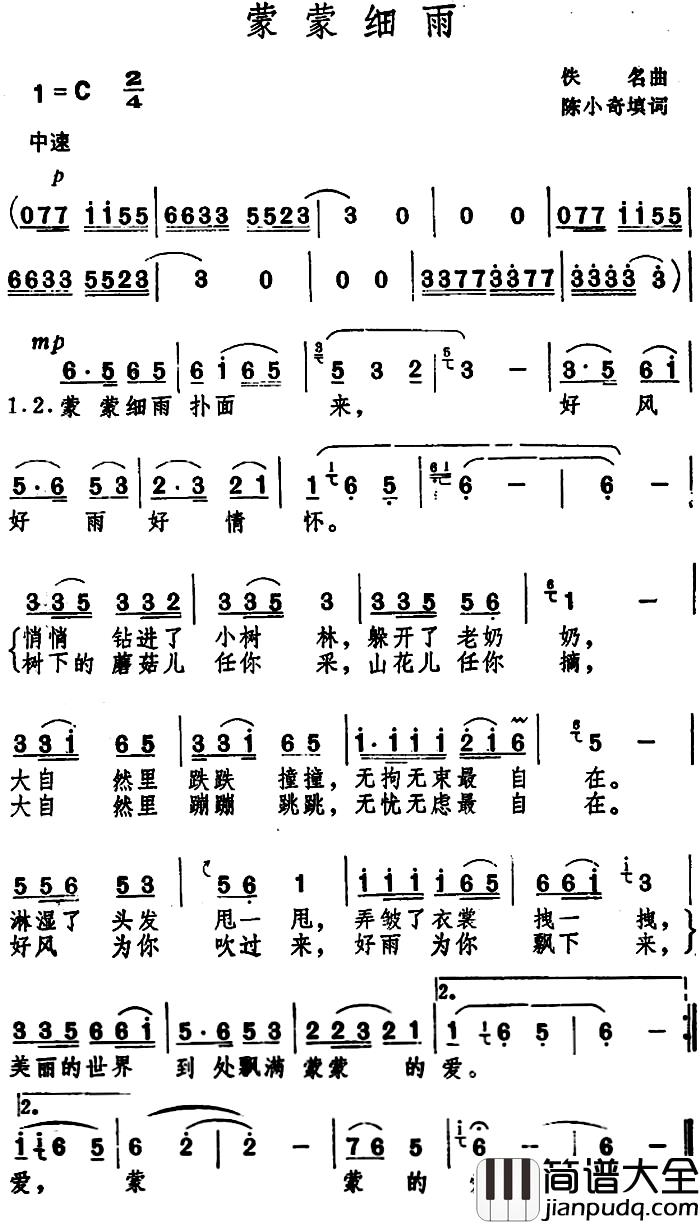 蒙蒙细雨
1=C 2/4
佚 名曲
陈小奇填词
中速
p
(077 i i55 | 6633 5523 | 3 0 | 0 0 | 077 i i55 |
6633 5523 | 3 0 | 0 0 | 3377 3377 | 3333 3) |
mp
6·5 65 | 6 i 65 | 5 3 2 | 3 - | 3·5 6 i |
1.2.蒙 蒙细雨 扑面 来, 好 风
5·6 53 | 2·3 21 | 1 6 5 | 6 - | 6 - |
好 雨 好 情 怀。
335 332 | 335 3 | 335 56 | 1 - |
悄悄 钻进了 小树 林, 躲开了 老奶 奶,
树下的 蘑菇儿 任你 采, 山花儿 任你 摘,
33i 65 | 33i 65 | i·i i i 2 i 6 | 5 - |
大自 然里 跌跌 撞撞, 无拘无束最 自 在。
大自 然里 蹦蹦 跳跳, 无忧无虑最 自 在。
556 53 | 56 1 | i i i i 65 | 66i 3 |
淋湿了 头发 甩一 甩, 弄皱了 衣裳 拽一 拽,
好风 为你 吹过 来, 好雨 为你 飘下 来,
2.
335 66i | 5·6 53 | 22321 | 1 6 5 | 6 - :
美丽的世界 到 处飘满 蒙蒙 的 爱。
2.
i 6 5 | 6 2 | 2 - | 76 5 | 6 - | 6 -
爱, 蒙 蒙 的
简谱大全
jianpudq.com